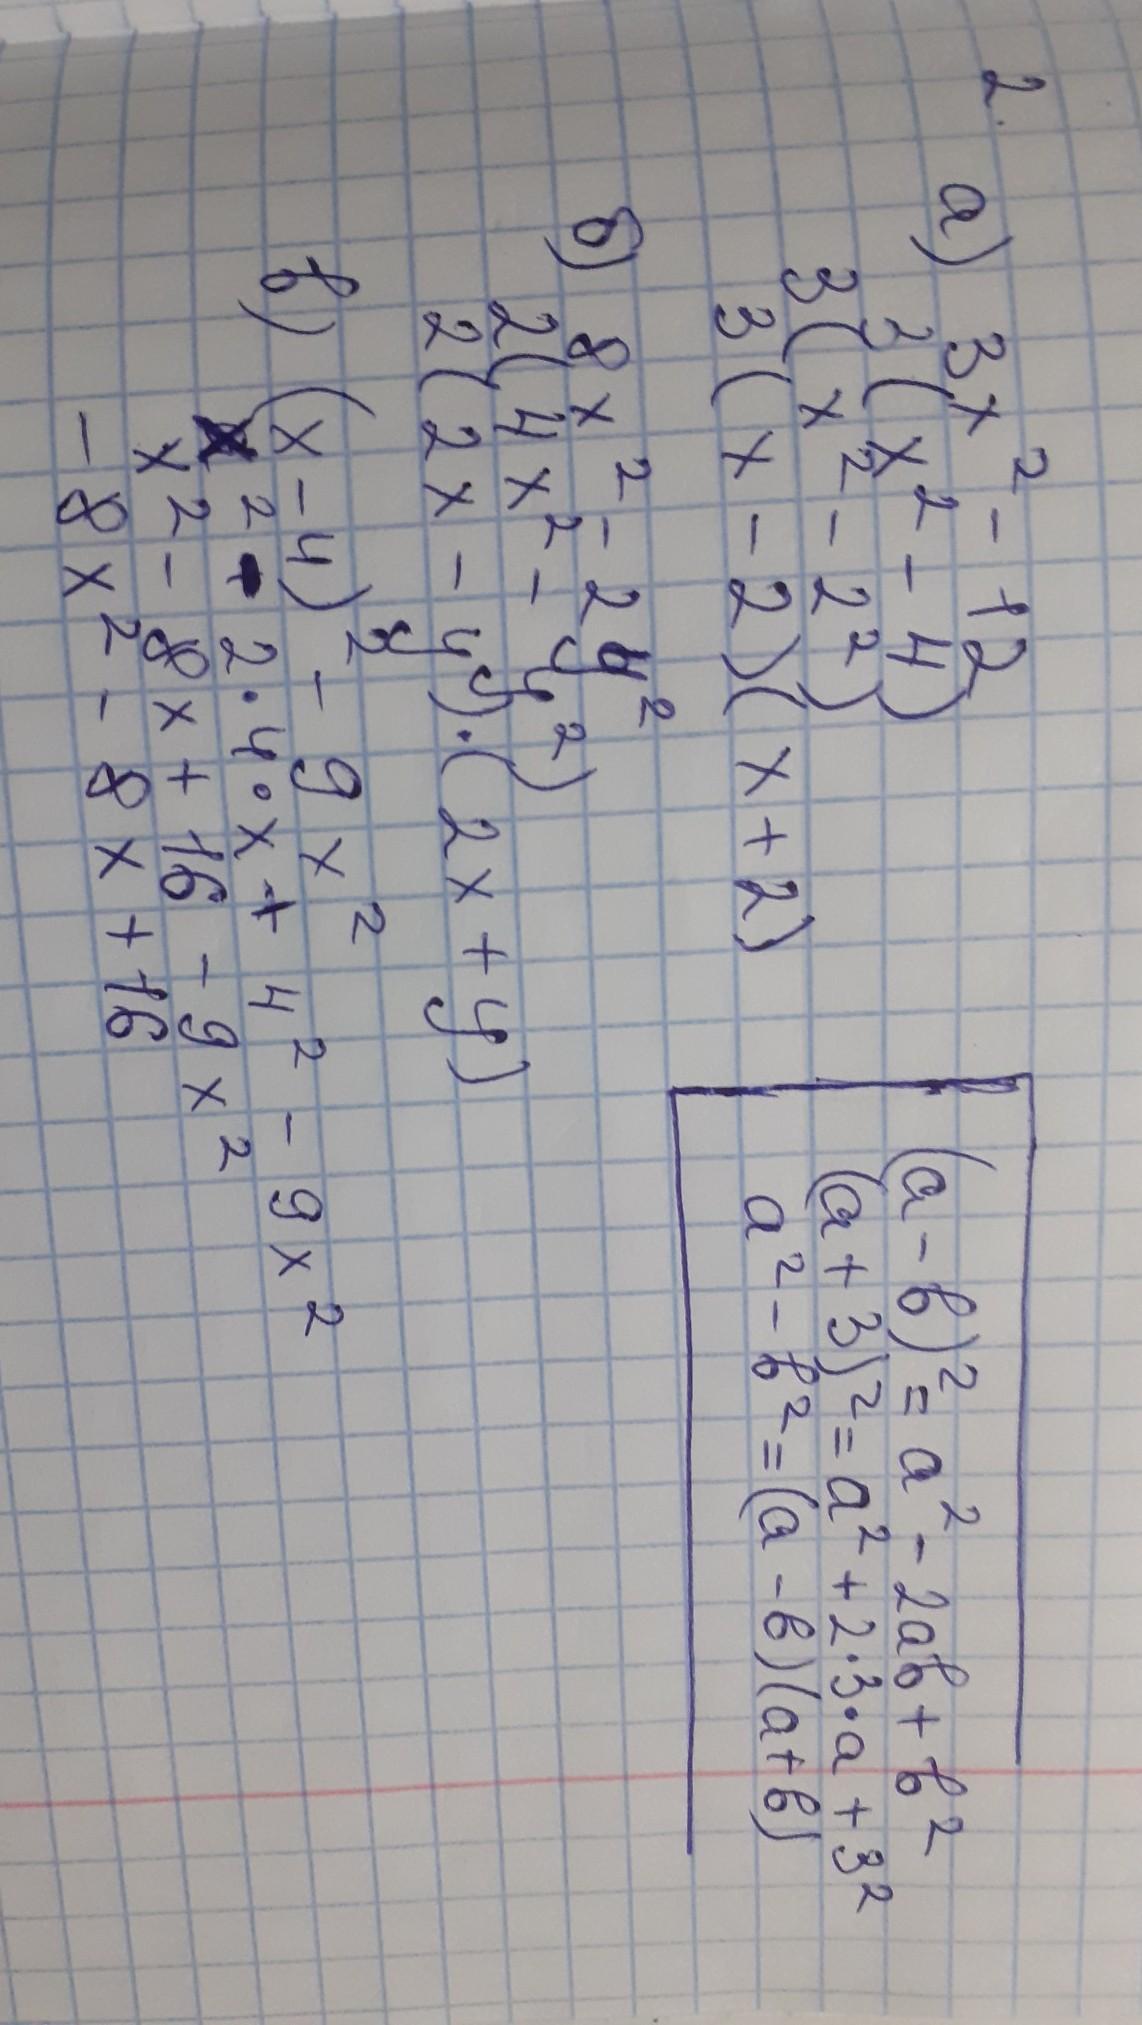 2.
а) 3x² - 12
3(x² - 4)
3(x² - 2²)
3(x - 2)(x + 2)
б) 8x² - 2y²
2(4x² - y²)
2(2x - y)·(2x + y)
в) (x - 4)² - 9x²
x² - 2·4·x + 4² - 9x²
x² - 8x + 16 - 9x²
- 8x² - 8x + 16
(a - в)² = a² - 2aв + в²
(a + 3)² = a² + 2·3·a + 3²
a² - в² = (a - в)(a + в)